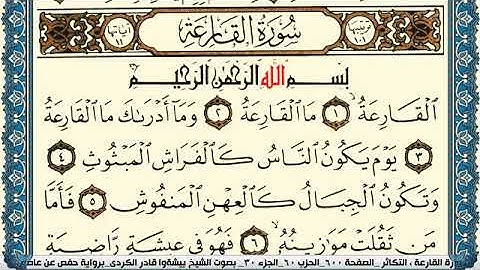 سُورَةُ القَارِعَةِ
بِسْمِ اللَّهِ الرَّحْمَٰنِ الرَّحِيمِ
الْقَارِعَةُ ١ مَا الْقَارِعَةُ ٢ وَمَا أَدْرَىٰكَ مَا الْقَارِعَةُ
٣ يَوْمَ يَكُونُ النَّاسُ كَالْفَرَاشِ الْمَبْثُوثِ ٤
وَتَكُونُ الْجِبَالُ كَالْعِهْنِ الْمَنْفُوشِ ٥ فَأَمَّا
مَنْ ثَقُلَتْ مَوَازِينُهُ ٦ فَهُوَ فِي عِيشَةٍ رَّاضِيَةٍ
القارعة ، التكاثر _الصفحة ٦٠٠_الحزب ٦٠_الجزء ٣٠_ بصوت الشيخ بيشةوا قادر الكردى_برواية حفص عن